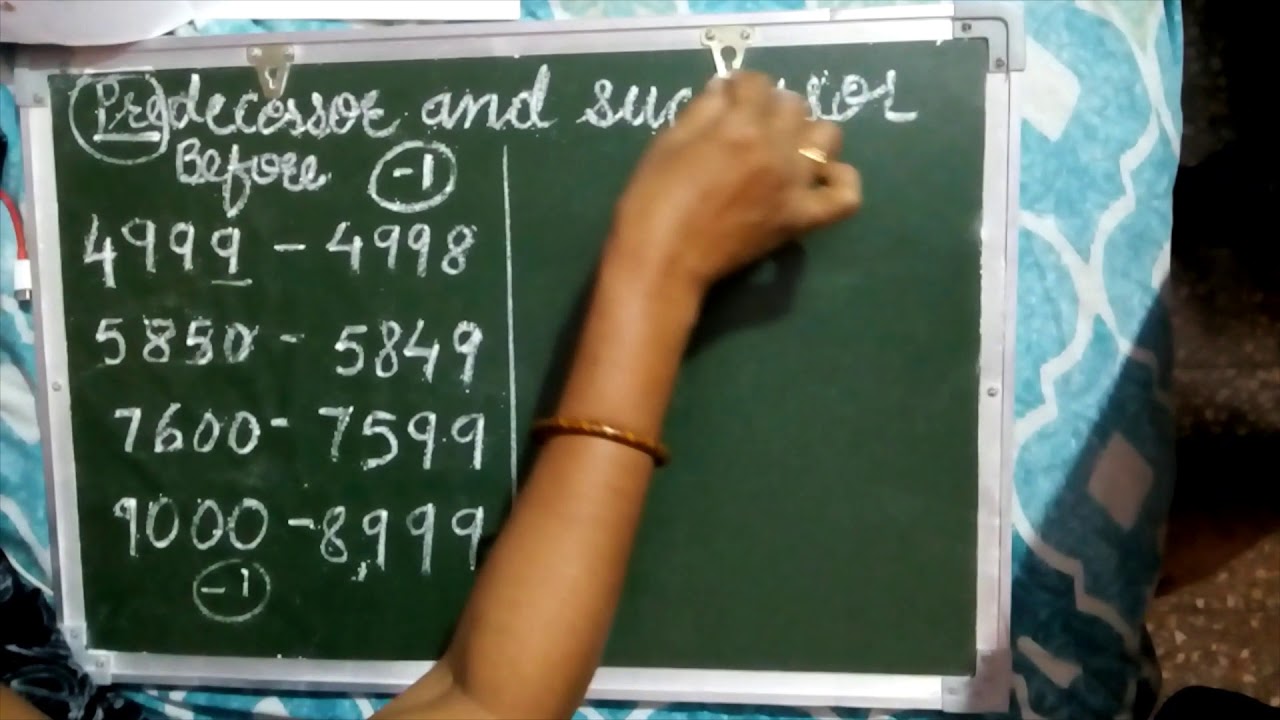 Predecessor and
Before -1
4999 - 4998
5850 - 5849
7600 - 7599
9000 - 8,999
-1